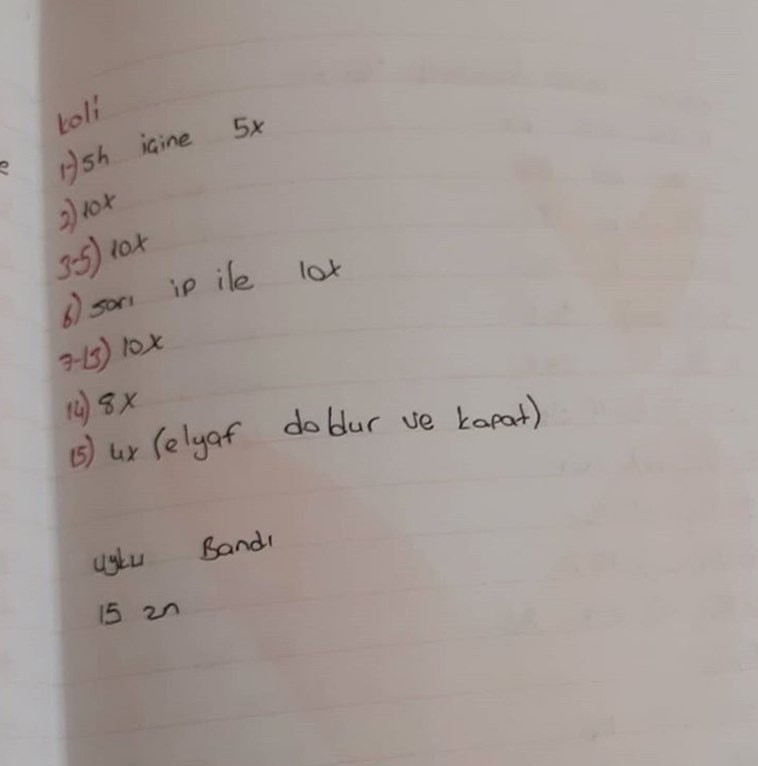 koli
1-) sh içine 5x
2) 10x
3-5) 10x
6) sarı ip ile 10x
7-13) 10x
14) 8x
15) 4x (elyaf doldur ve kapat)
uyku Bandı
15 zn